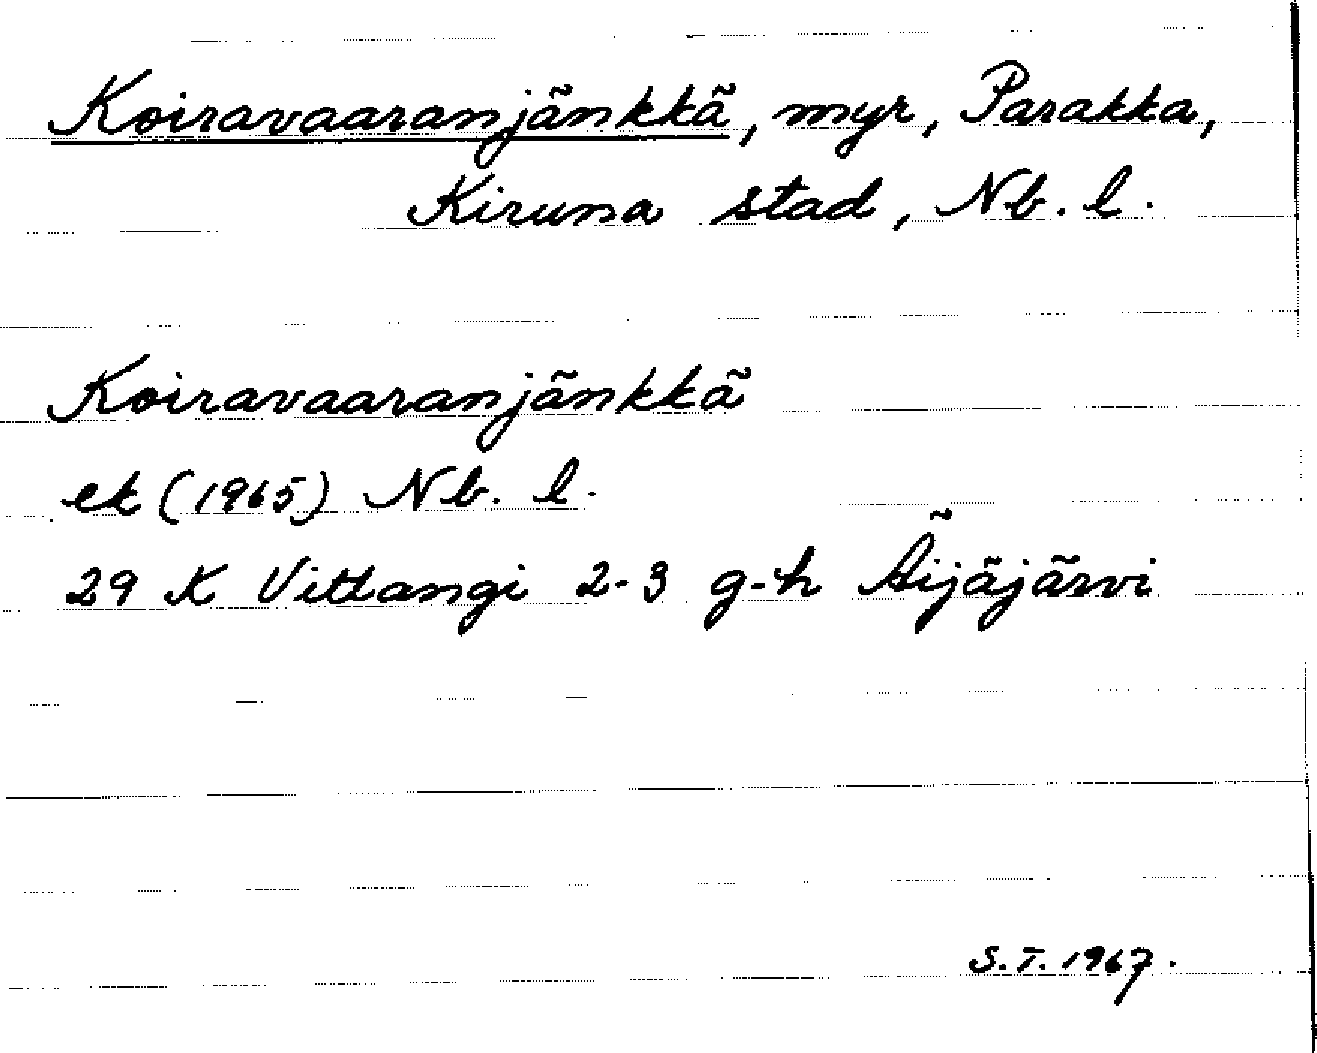 Koiravaaranjänkkä, myr, Parakka,
Kiruna stad, Nb. l.
Koiravaaranjänkkä
ek (1965) Nb. l.
29 K Vittangi 2-3 g-h Äijäjärvi
S.T. 1967.